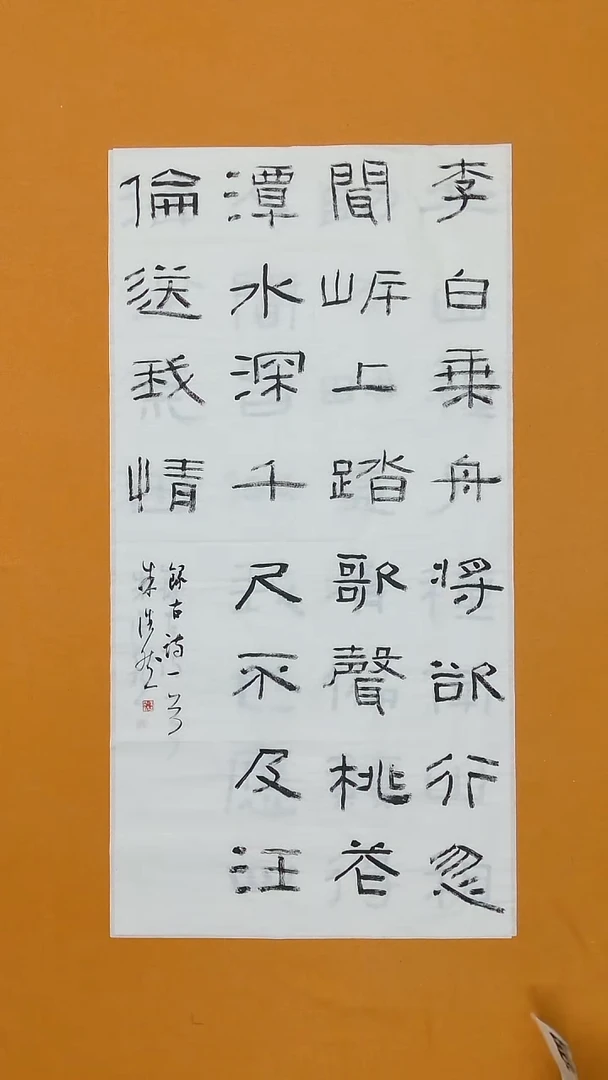 李白乗舟將欲行忽
間岓上踏歌聲桃花
潭水深千尺不及汪
倫送我情
錄古詩一首
朱